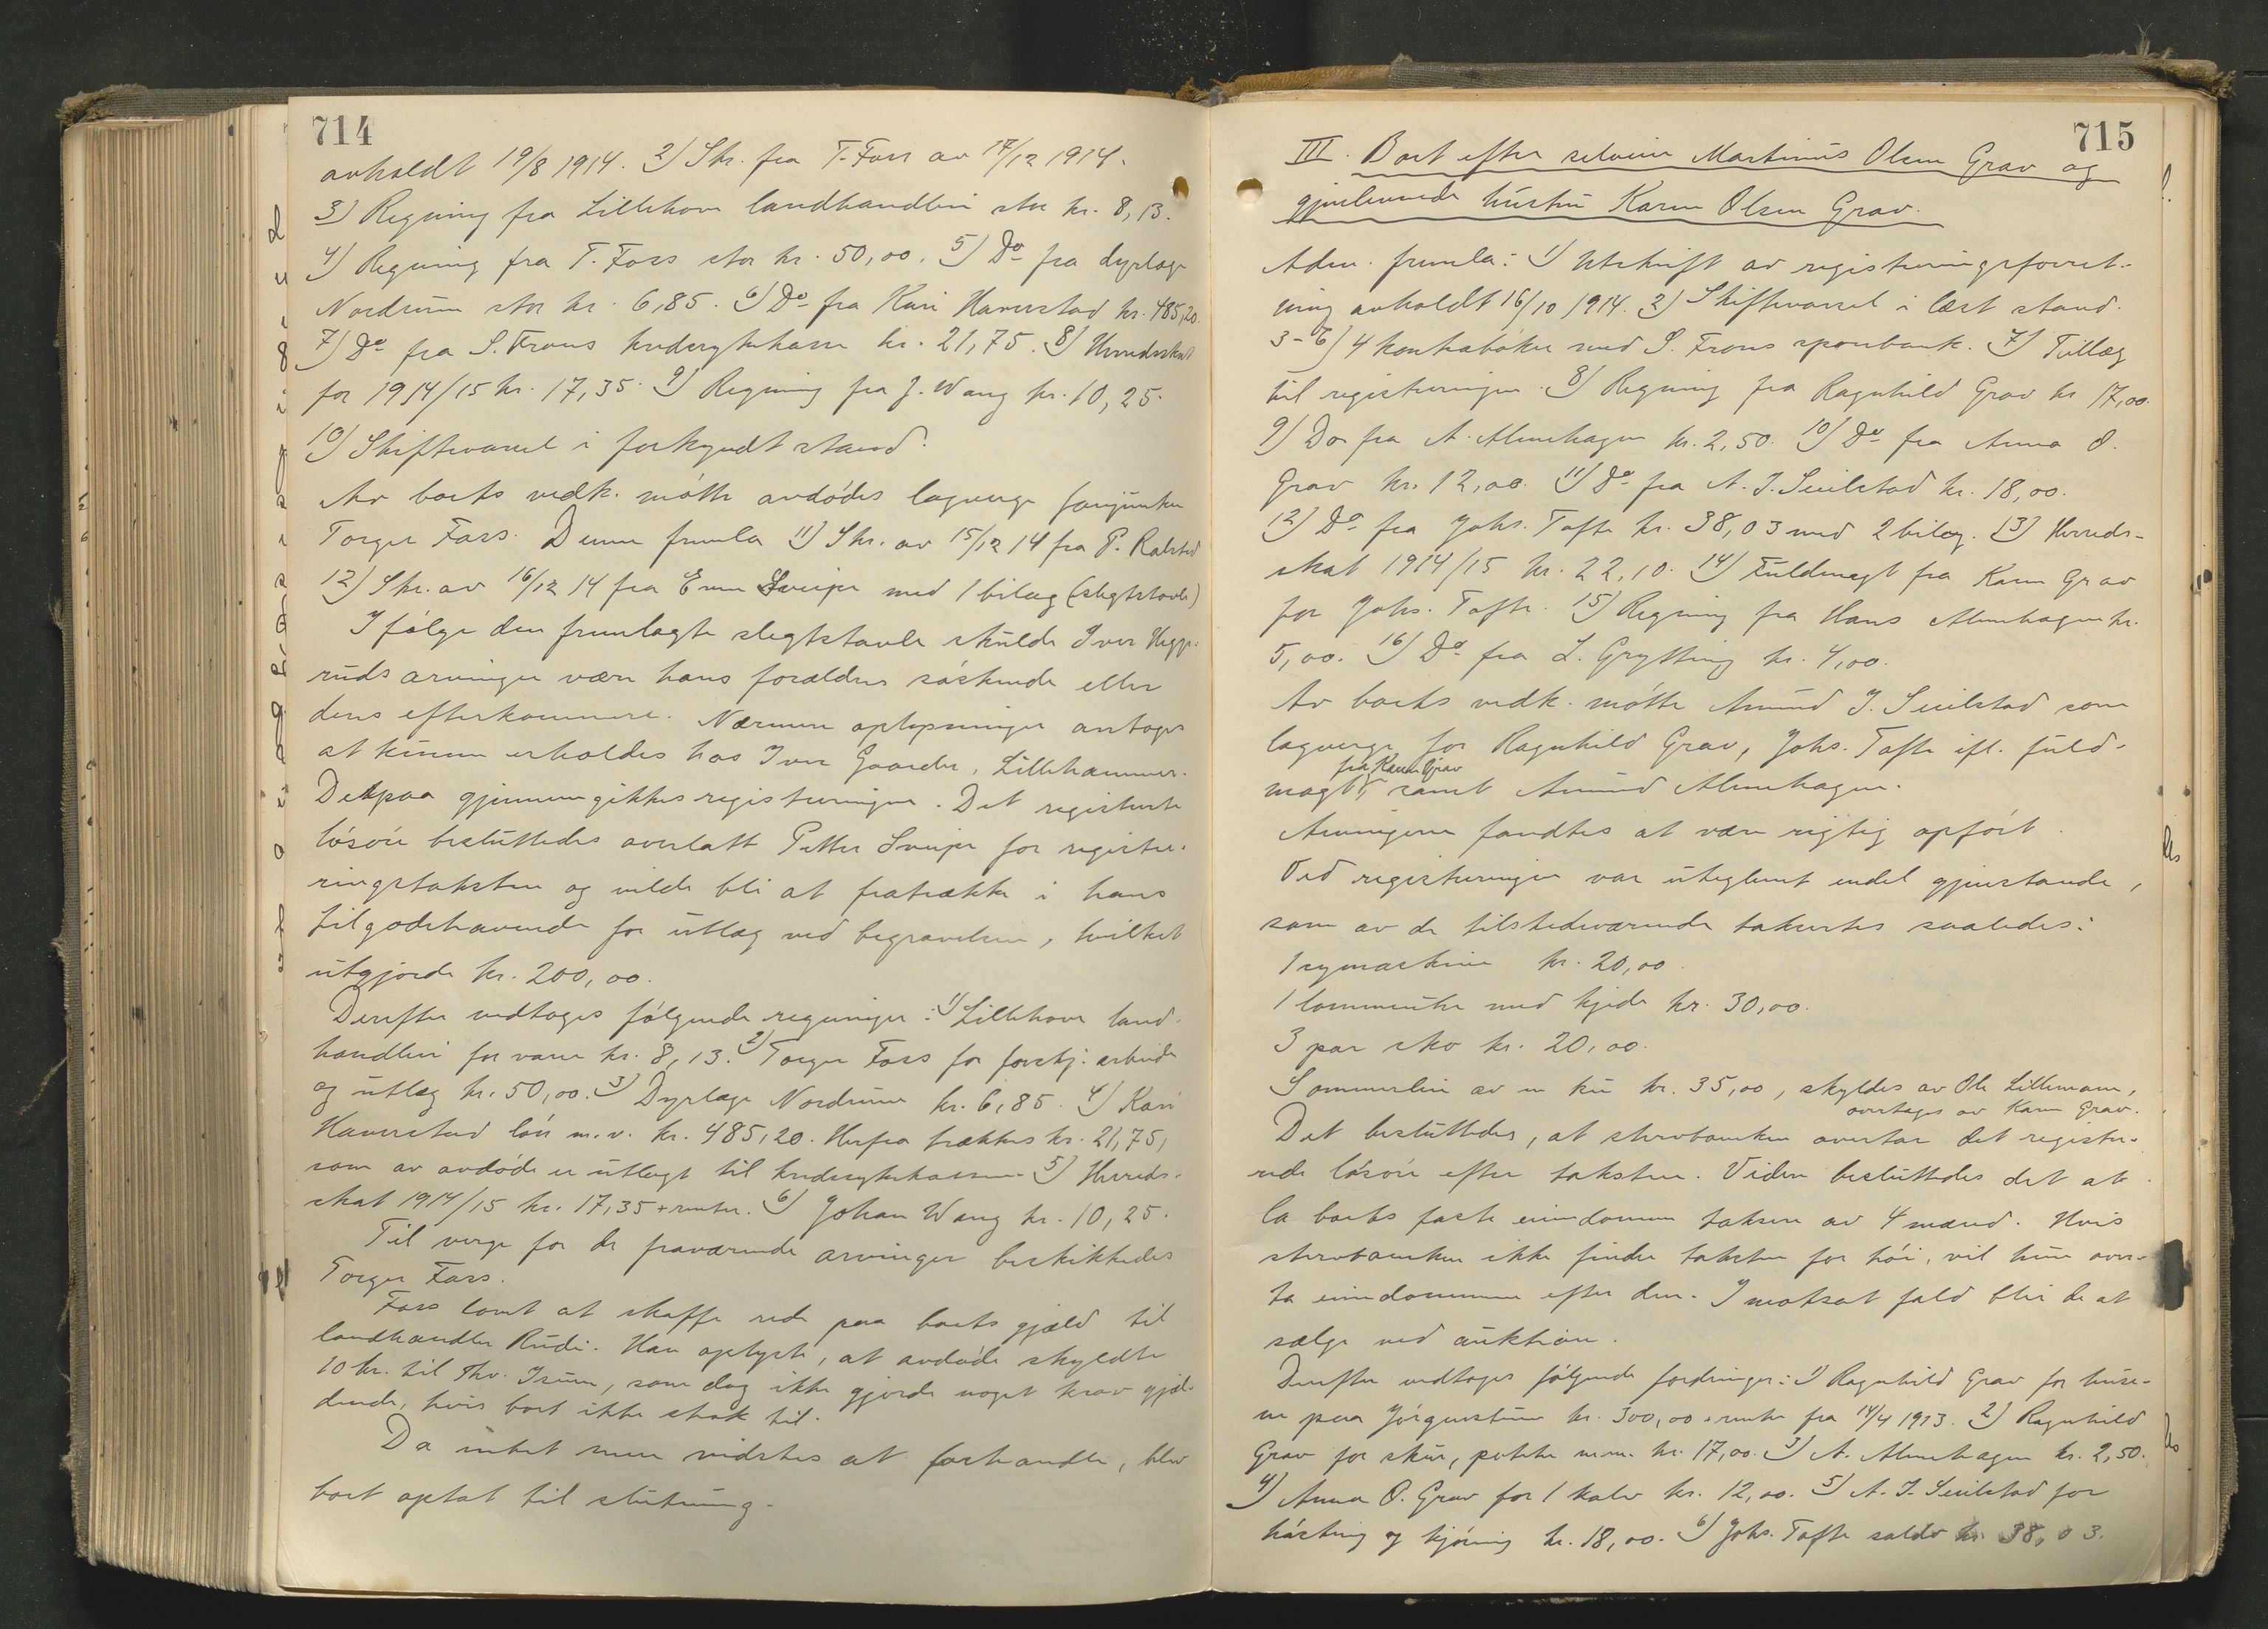 714
avholdt 19/8 1914. 2) Skr. fra T. Foss av 17/12 1914.
3) Regning fra Lillehove landhandleri stor kr. 8,13.
4) Regning fra T. Foss stor kr. 50,00. 5) Do fra dyrlæge
Nordrum stor kr. 6,85. 6) Do fra Kari Haverstad kr. 485,20.
7) Do fra S. Frons kredssykekasse kr. 21,75. 8) Herredsskat
for 1914/15 kr. 17,35. 9) Regning fra J. Wang kr. 10,25.
10) Skiftevarsel i forkyndt stand.
Av boets vedk. møtte avdødes lagverge fanejunker
Torger Foss. Denne fremla 11) Skr. av 15/12 14 fra P. Ralstad
12) Skr. av 16/12 14 fra Sveipe med 1 bilag (slegtstavle)
Ifølge den fremlagte slegtstavle skulde Iver Hegge-
ruds arvinger være hans forældres søskende eller
deres efterkommere. Nærmere oplysninger antages
at kunne erholdes hos Iver Gaarder, Lillehammer.
Derpaa gjennemgikkes registreringen. Det registrerte
løsøre besluttedes overlatt Petter Sveipe for registre-
ringstaksten og vilde bli at fratrække i hans
tilgodehavende for utlæg ved begravelsen, hvilket
utgjorde kr. 200,00.
Derefter vedtoges følgende regninger: 1) Lillehove land-
handleri for varer kr. 8,13. 2) Torger Foss for forskj. arbeide
og utlæg kr. 50,00. 3) Dyrlæge Nordrum kr. 6,85. 4) Kari
Haverstad løn m.v. kr. 485,20. Herfra trækkes kr. 21,75,
som av avdøde er utlagt til kredssykekassen 5) Herreds-
skat 1914/15 kr. 17,35 + renter. 6) Johan Wang kr. 10,25.
Til verge for de fraværende arvinger beskikkedes
Torger Foss.
Foss lovet at skaffe rede paa boets gjæld til
landhandler Rudi. Han oplyste, at avdøde skyldte
10 kr. til Thv. Isum, som dog ikke gjorde noget krav gjæl-
dende, hvis boet ikke strak til.
Da intet mere vidstes at forhandle, blev
boet optat til slutning.
715
III. Boet efter selveier Martinus Olsen Grav og
gjenlevende hustru Karen Olsen Grav.
Adm. fremla: 1) Utskrift av registreringsforret-
ning avholdt 16/10 1914. 2) Skiftevarsel i læst stand.
3-6) 4 kontrabøker med S. Frons sparebank. 7) Tillæg
til registreringen. 8) Regning fra Ragnhild Grav kr 17,00.
9) Do fra A. Almehagen kr. 2,50. 10) Do fra Anna O.
Grav kr. 12,00. 11) Do fra A. J. Seielstad kr. 18,00.
12) Do fra Johs. Tofte kr. 38,03 med 2 bilag. 13) Herreds-
skat 1914/15 kr. 22,10. 14) Fuldmagt fra Karen Grav
for Johs. Tofte. 15) Regning fra Hans Almehagen kr.
5,00. 16) Do fra L. Grytting kr. 4,00.
Av boets vedk. møtte Amund J. Seielstad som
lagverge for Ragnhild Grav, Johs. Tofte ifl. fuld-
fra Karen Grav
magt, samt Amund Almehagen.
Arvingerne fandtes at være rigtig opført.
Ved registreringen var uteglemt endel gjenstande,
som av de tilstedeværende takseres saaledes:
1 symaskine kr. 20,00.
1 lommeuhr med kjede kr. 30,00.
3 par sko kr. 20,00.
Sommerleie av en ku kr. 35,00, skyldes av Ole Lillemoen,
overtages av Karen Grav.
Det besluttedes, at stervboenken overtar det registre-
rede løsøre efter taksten. Videre besluttedes det at
la boets faste eiendomme taksere av 4 mænd. Hvis
stervboenken ikke finder taksten for høi, vil hun over-
ta eiendommene efter den. I motsat fald blir de at
sælge ved auktion.
Derefter vedtoges følgende fordringer: 1) Ragnhild Grav for huse-
ne paa Jørgenstuen kr. 300,00 + renter fra 14/4 1913. 2) Ragnhild
Grav for skur, poteter m.m. kr. 17,00. 3) A. Almehagen kr. 2,50.
4) Anna O. Grav for 1 kalv kr. 12,00. 5) A. J. Seielstad for
høsting og kjøring kr. 18,00. 6) Johs. Tofte saldo kr. 38,03.